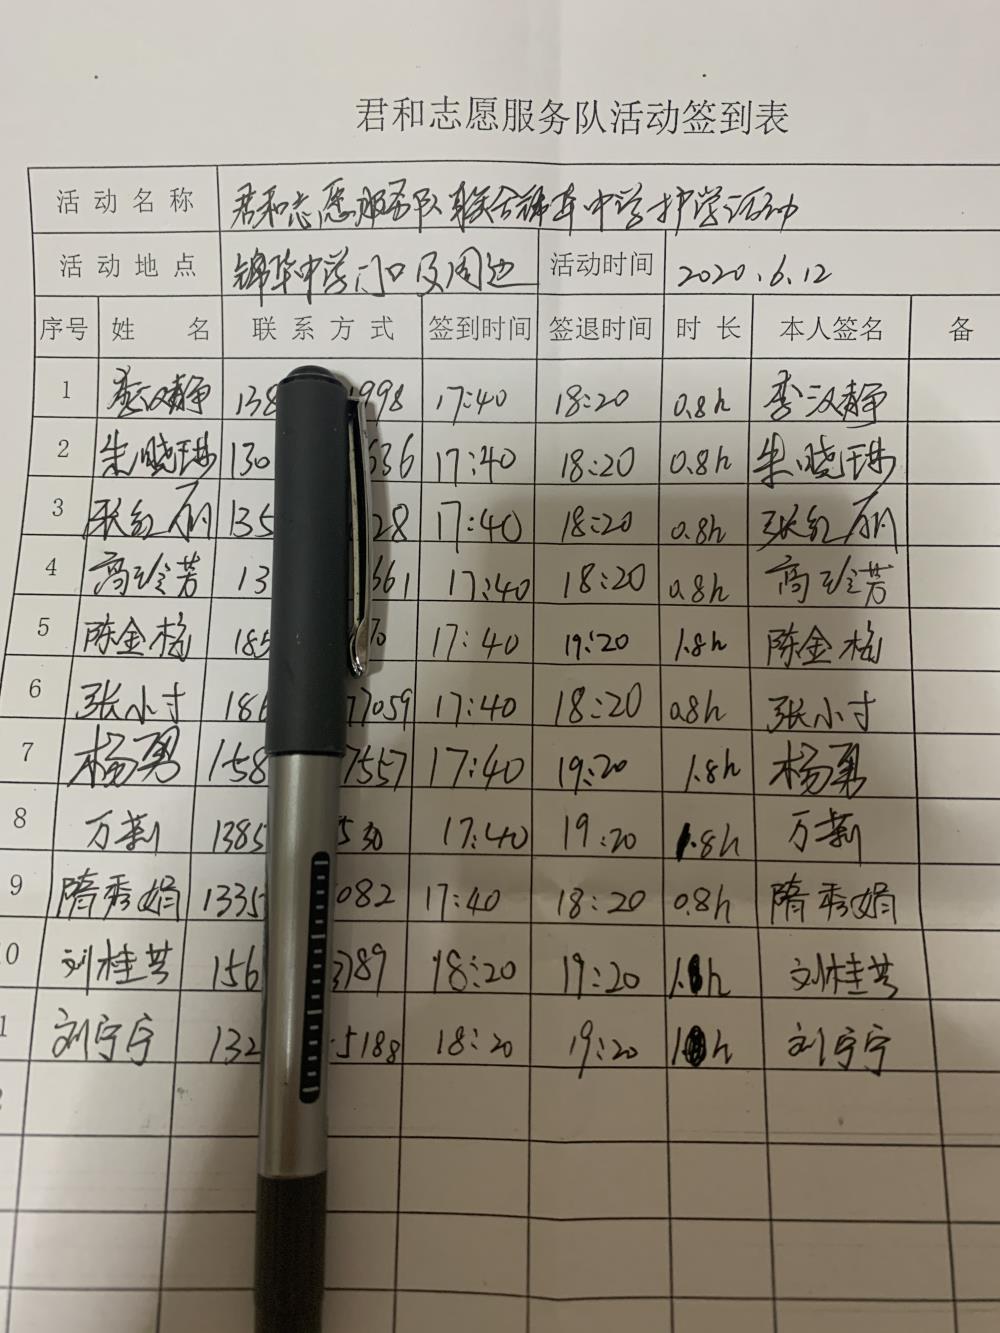 君和志愿服务队活动签到表
活动名称 君和志愿服务队联合锦华中学护学活动
活动地点 锦华中学门口及周边 活动时间 2020.6.12
序号 姓名 联系方式 签到时间 签退时间 时长 本人签名 备
1 李汉静 138 1998 17:40 18:20 0.8h 李汉静
2 朱晓琳 130 636 17:40 18:20 0.8h 朱晓琳
3 张红丽 135 28 17:40 18:20 0.8h 张红丽
4 高珍芳 13 661 17:40 18:20 0.8h 高珍芳
5 陈金梅 185 70 17:40 19:20 1.8h 陈金梅
6 张小寸 186 77059 17:40 18:20 0.8h 张小寸
7 杨勇 158 7557 17:40 19:20 1.8h 杨勇
8 万莉 1385 530 17:40 19:20 1.8h 万莉
9 隋秀娟 1335 082 17:40 18:20 0.8h 隋秀娟
0 刘桂芸 156 3789 18:20 19:20 h 刘桂芸
1 刘宁宁 132 5188 18:20 19:20 h 刘宁宁